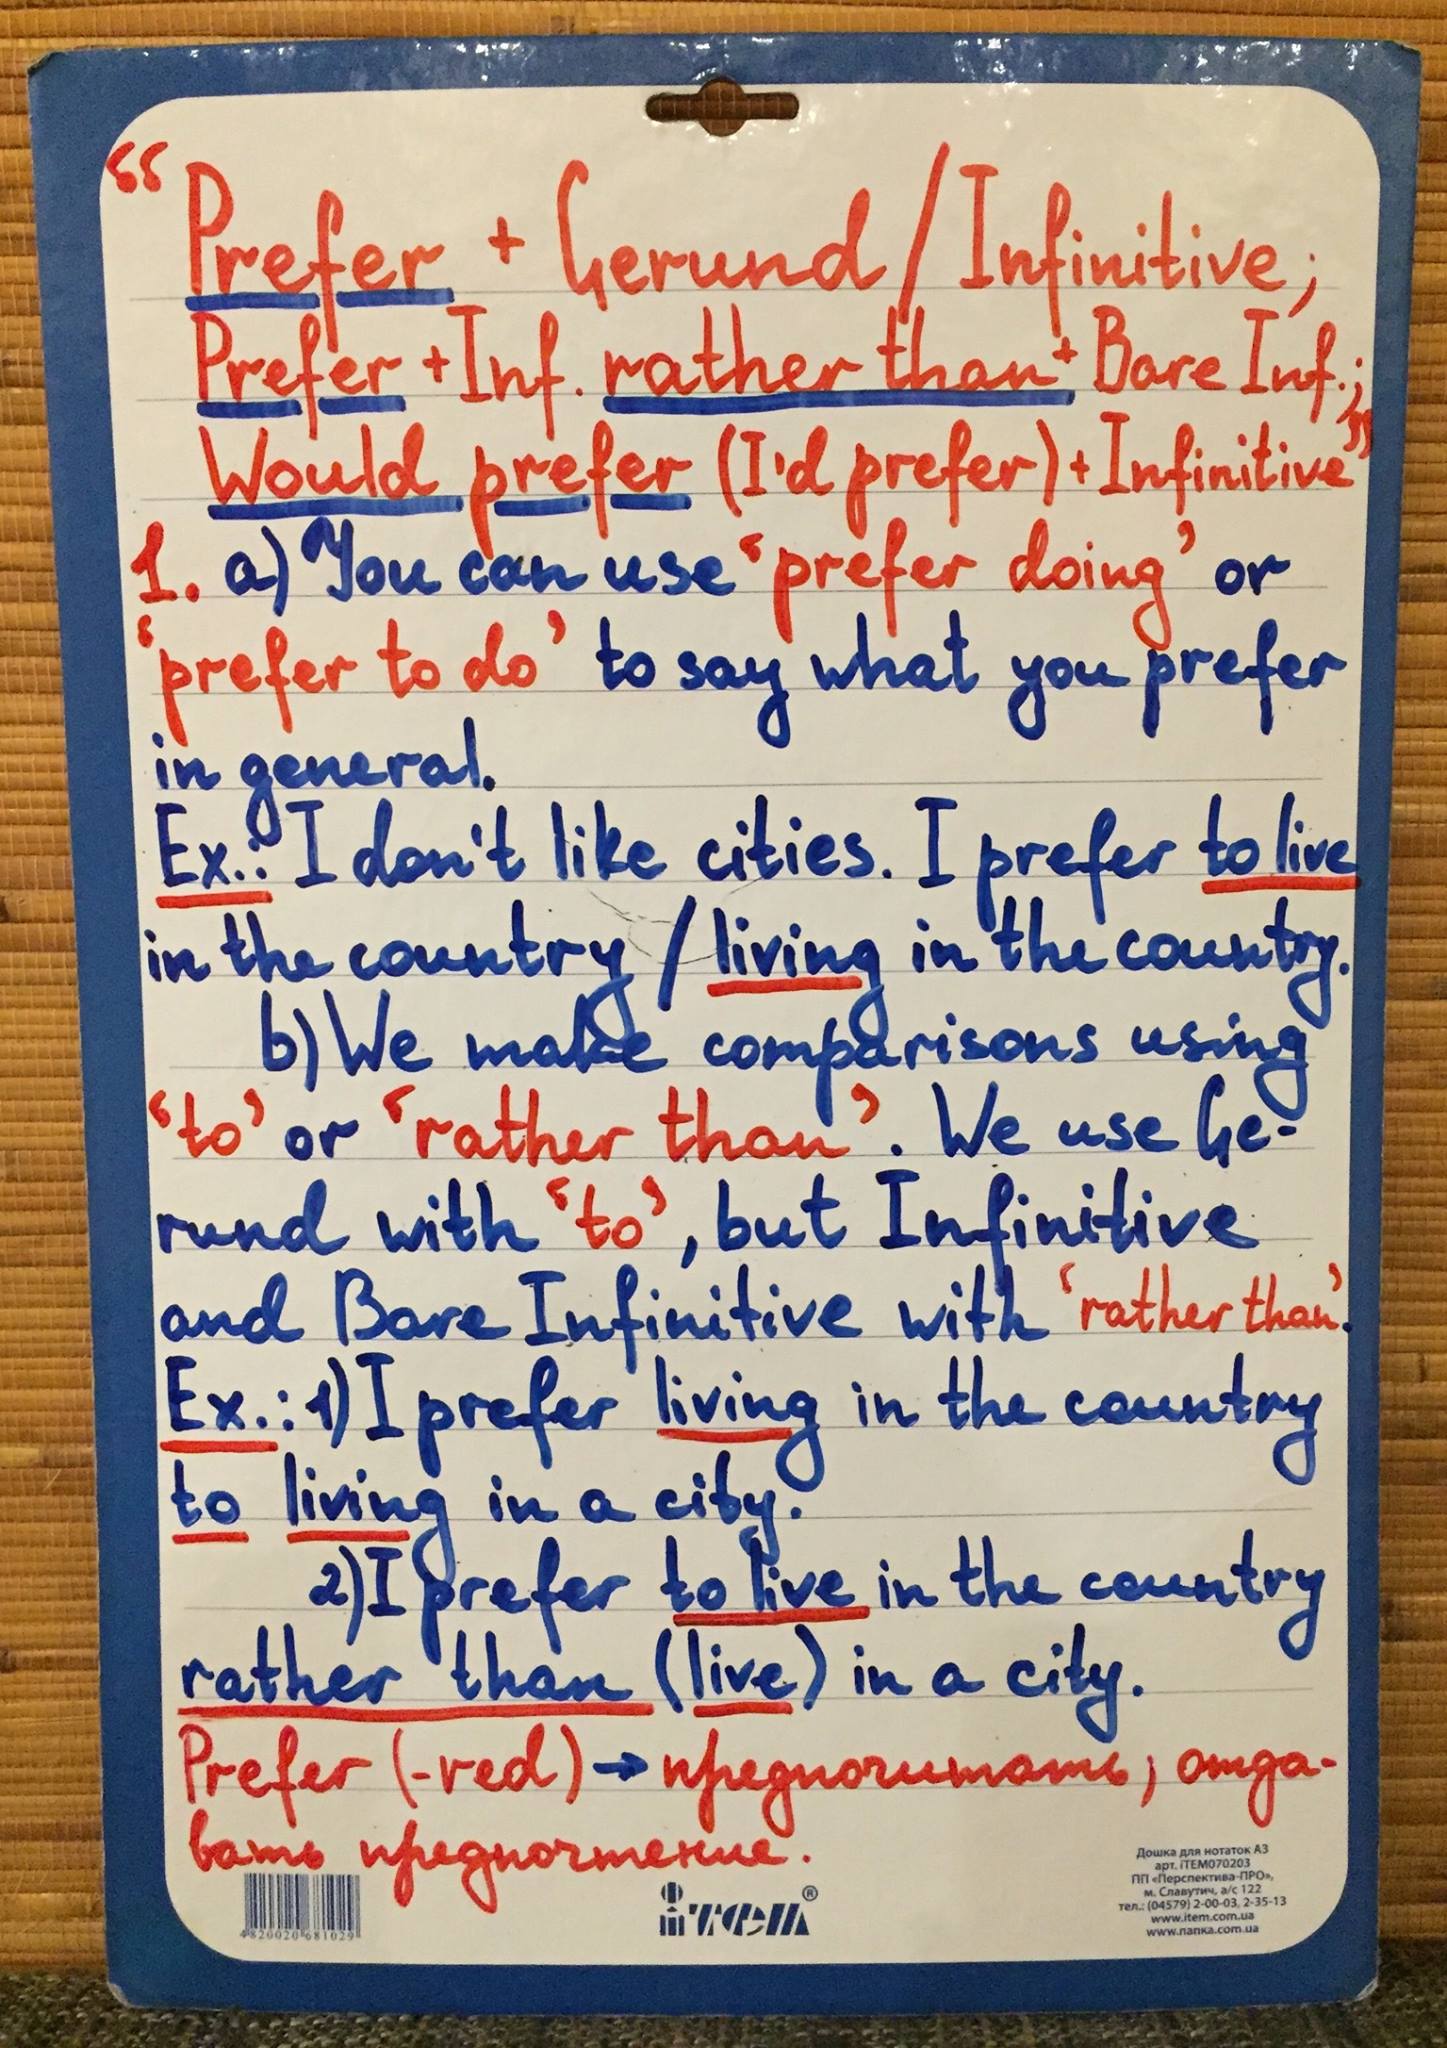 “Prefer + Gerund / Infinitive;
Prefer + Inf. rather than + Bare Inf.;
Would prefer (I'd prefer) + Infinitive”
1. a) You can use ‘prefer doing’ or
‘prefer to do’ to say what you prefer
in general.
Ex.: I don't like cities. I prefer to live
in the country / living in the country.
b) We make comparisons using
‘to’ or ‘rather than’. We use Ge-
rund with ‘to’, but Infinitive
and Bare Infinitive with ‘rather than’.
Ex.: 1) I prefer living in the country
to living in a city.
2) I prefer to live in the country
rather than (live) in a city.
Prefer (-red) → предпочитать; отда-
вать предпочтение.
4820020681029
iTEM®
Дошка для нотаток А3
арт. iTEM070203
ПП «Перспектива-ПРО»,
м. Славутич, а/с 122
тел.: (04579) 2-00-03, 2-35-13
www.item.com.ua
www.папка.com.ua